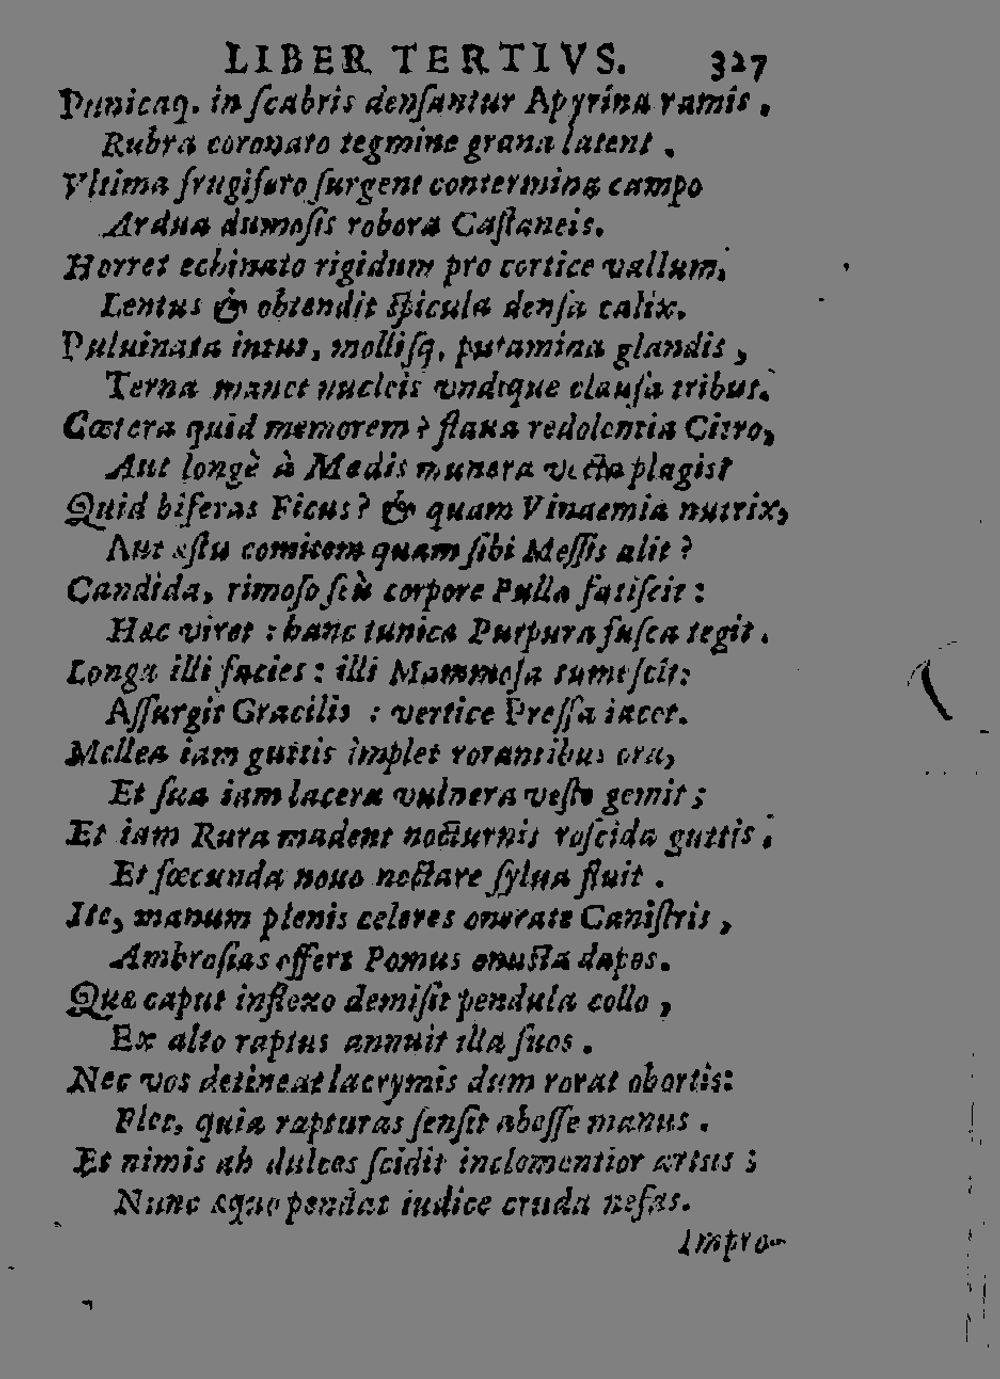 LIBER TERTIVS. 327
Punicaq. in ſcabris denſantur Apyrina ramis.
Rubra coronato tegmine grana latent.
Vltima frugifero ſurgent contermina campo
Ardua dumoſis robora Caſtaneis.
Horret echinato rigidum pro cortice vallum,
Lentus & obtendit ſpicula denſa calix.
Puluinata intus, molliſq, putamina glandis,
Terna manet nucleis vndique clauſa tribus.
Cœtera quid memorem? flaua redolentia Citro,
Aut longè à Medis munera vecta plagis?
Quid biferas Ficus? & quam Vinaemia nutrix,
Aut æſtu comitem quam ſibi Meſſis alit?
Candida, rimoſo ſeù corpore Pulla fatiſcit:
Hæc viret: hanc tunica Purpura fuſca tegit.
Longa illi facies: illi Mammoſa tumeſcit:
Aſſurgit Gracilis: vertice Preſſa iacet.
Mellea iam guttis implet rorantibus ora,
Et ſua iam lacera vulnera veſte gemit;
Et iam Rura madent nocturnis roſcida guttis;
Et fœcunda nouo nectare ſylua fluit.
Ite, manum plenis celeres onerate Caniſtris,
Ambroſias offert Pomus onuſta dapes.
Quæ caput inflexo demiſit pendula collo,
Ex alto raptus annuit illa ſuos.
Nec vos detineat lacrymis dum rorat obortis:
Flet, quia rapturas ſenſit abeſſe manus.
Et nimis ah dulces ſcidit inclementior artus;
Nunc æquo pendat iudice cruda nefas.
Impro-